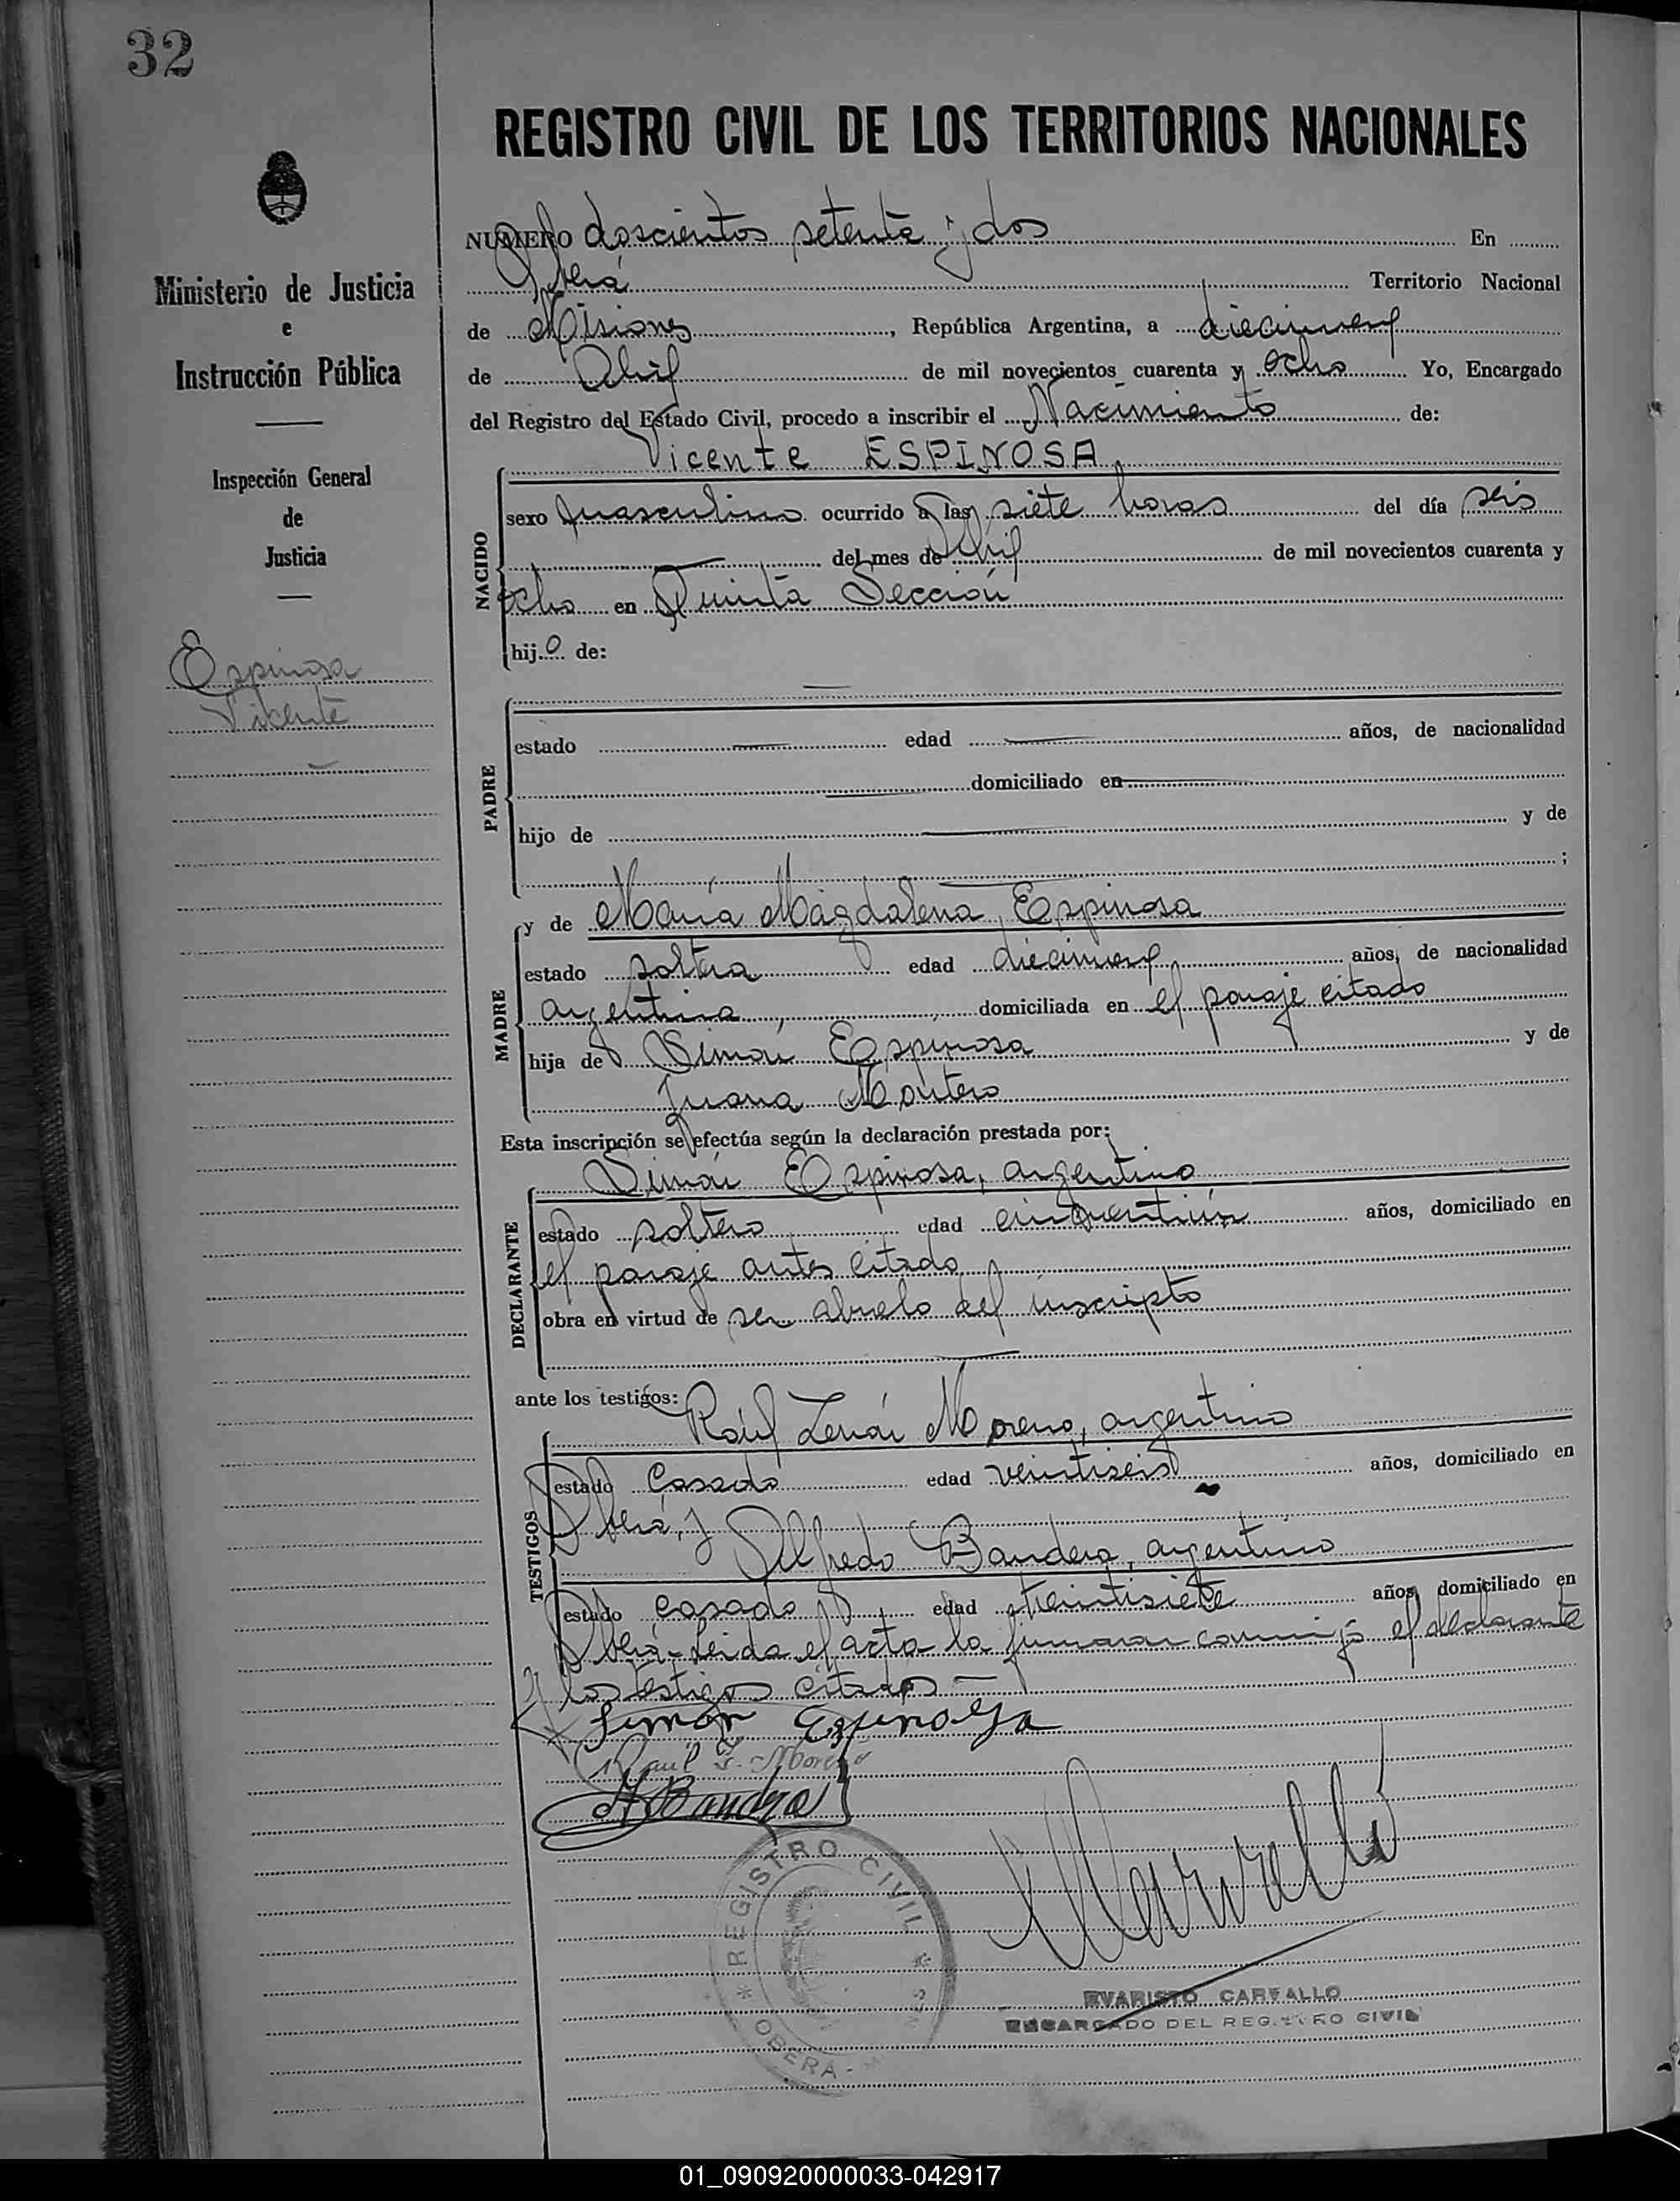 32
REGISTRO CIVIL DE LOS TERRITORIOS NACIONALES
Ministerio de Justicia
e
Instrucción Pública
Inspección General
de
Justicia
Espinosa
Vicente
NUMERO doscientos setenta y dos En
Oberá Territorio Nacional
de Misiones, República Argentina, a diecinueve
de Abril de mil novecientos cuarenta y ocho Yo, Encargado
del Registro del Estado Civil, procedo a inscribir el Nacimiento de:
Vicente ESPINOSA
NACIDO
sexo masculino ocurrido a las siete horas del día seis
del mes de Abril de mil novecientos cuarenta y
ocho en Quinta Sección
hijo de:
PADRE
estado edad años, de nacionalidad
domiciliado en
hijo de y de
;
MADRE
y de María Magdalena Espinosa
estado soltera edad diecinueve años, de nacionalidad
argentina, domiciliada en el paraje citado
hija de Simón Espinosa y de
Juana Montero
Esta inscripción se efectúa según la declaración prestada por:
DECLARANTE
Simón Espinosa, argentino
estado soltero edad cincuentiún años, domiciliado en
el paraje antes citado
obra en virtud de ser abuelo del inscripto
ante los testigos:
TESTIGOS
Raúl Moreno, argentino
estado casado edad veintiseis años, domiciliado en
Oberá, y
Alfredo Bandera, argentino
estado casado edad treintisiete años, domiciliado en
Oberá.- Leida el acta la firmaron conmigo el declarante
y los testigos citados
Simon Espinosa
Raul Z. Moreno
A Bandera
REGISTRO CIVIL
OBERA
EVARISTO CARVALLO
ENCARGADO DEL REGISTRO CIVIL
01_090920000033-042917